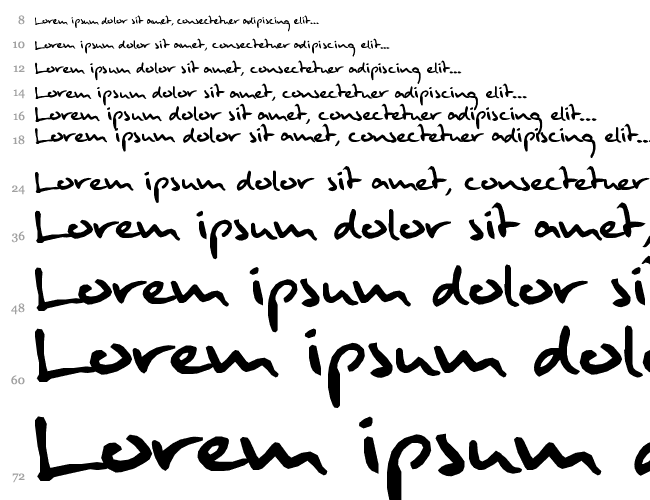 8 Lorem ipsum dolor sit amet, consectetuer adipiscing elit...
10 Lorem ipsum dolor sit amet, consectetuer adipiscing elit...
12 Lorem ipsum dolor sit amet, consectetuer adipiscing elit...
14 Lorem ipsum dolor sit amet, consectetuer adipiscing elit...
16 Lorem ipsum dolor sit amet, consectetuer adipiscing elit...
18 Lorem ipsum dolor sit amet, consectetuer adipiscing elit...
24 Lorem ipsum dolor sit amet, consectetuer
36 Lorem ipsum dolor sit amet,
48 Lorem ipsum dolor si
60 Lorem ipsum dol
72 Lorem ipsum